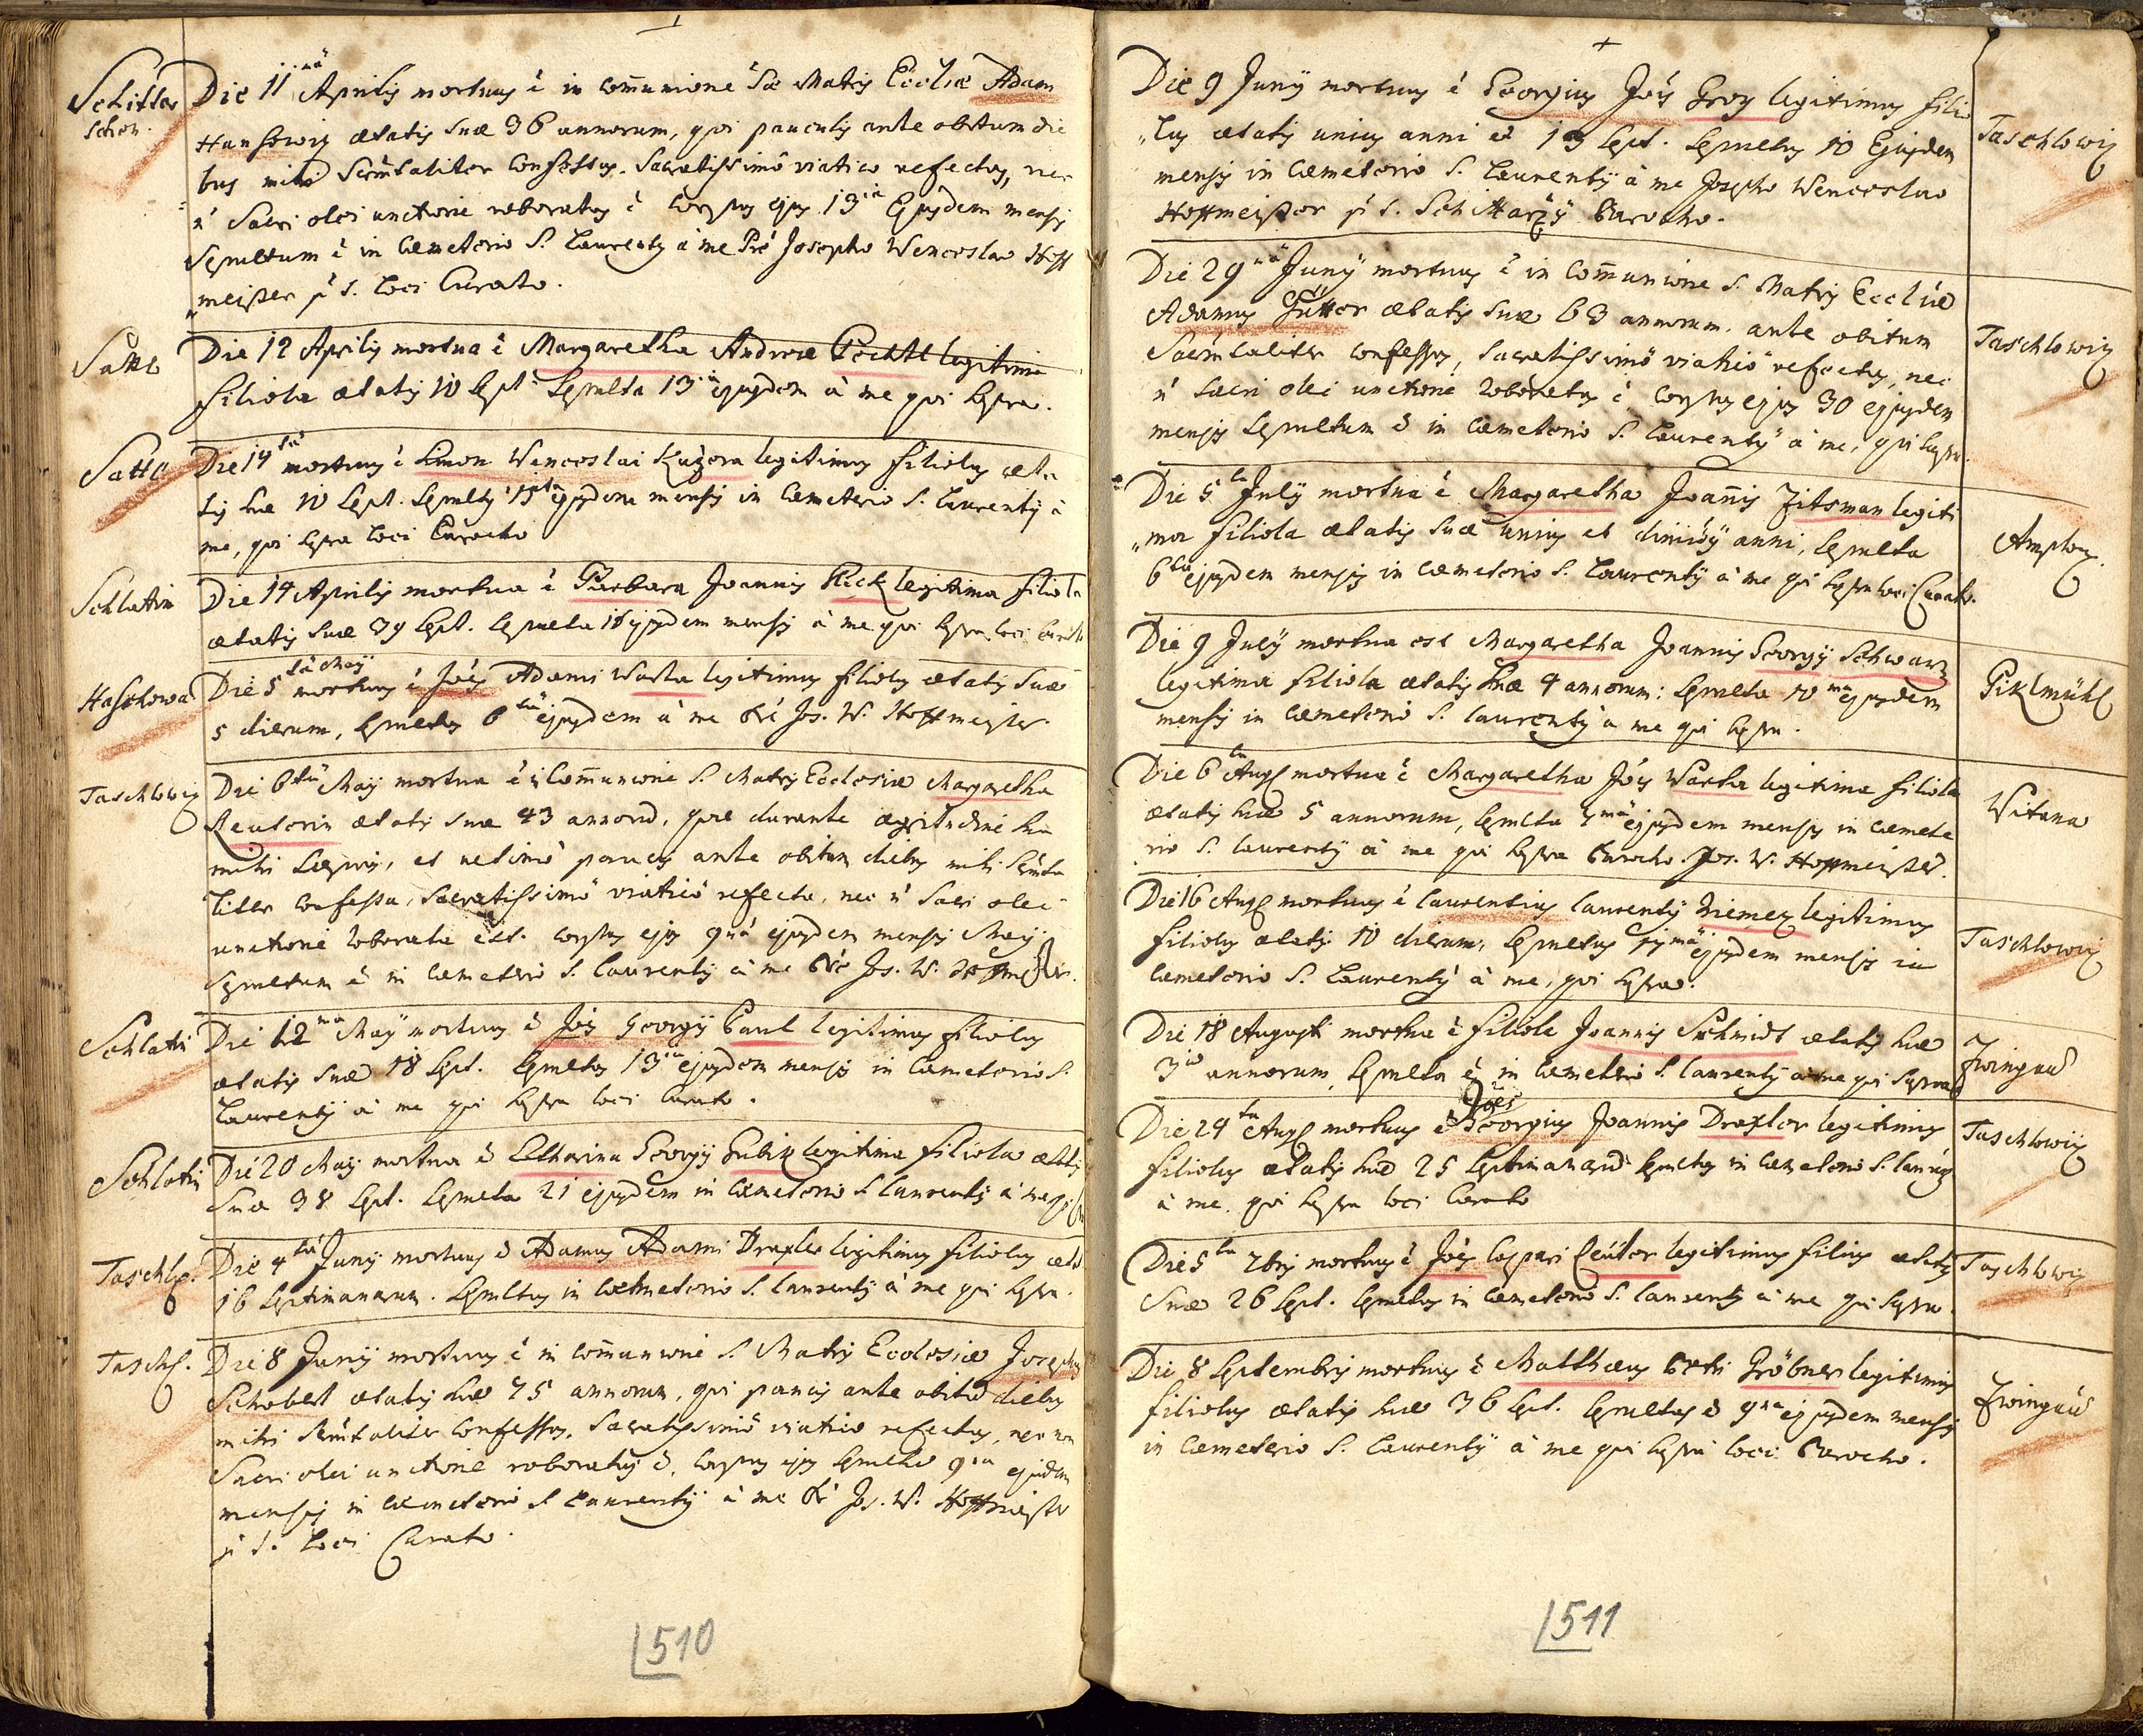 Schitta
schon.
Die 11mâ Aprilis mortuus ê in com̄unione Sæ Matris Eccliæ Adam
Hansowiz ætatis suæ 36 annorum, qui pauculis ante obitum die
bus mihi Sacr̃mtaliter confessus, Sacratissimô viaticô refectus, nec
n̄ Sacri olei unctione roboratus ê Corpus ejus 13tiâ Ejusdem mensis
Sepultum ê in Cæmeterio S. Laurentÿ â me Prê Josepho Wenceslao Hoff
„meister p̄ t. Loci Curato.
Sattl
Die 12 Aprilis mortua ê Margaretha Andreæ Pechtl legitima
filiola ætatis 10 Sept. Sepulta 13tiâ ejusdem â me qui supra.
Sattl
Die 14tâ mortuus ê Simon Wenceslai Kuzora legitimus filiolus æta
tis suæ 10 Sept. Sepultus 15ta ejusdem mensis in Cæmeterio S. Laurentÿ â
me, qui supra loci Parocho
Schlatin
Die 14 Aprilis mortua ê Barbara Joannis Pick legitima filiola
ætatis suæ 39 Sept. Sepulta 16 ejusdem mensis â me qui supra loci Curato
Haschowa
Die 5tâ Maÿ mortuus ê Joês Adami Wasta legitimus filiolus ætatis suæ
5 dierum, Sepultus 6tâ ejusdem â me Prê Jos. W. Hoffmeister.
Taschlowiz
Die 6tâ Maÿ mortua ê in Com̄unione S. Matris Ecclesiæ Margaretha
Reuterin ætatis suæ 43 annorũ, quæ durante ægritudine sua
mihi sæpius, et ultimô paucis ante obitum diebus mihi Sacr̃mta
liter confessa, Sacratissimô viaticô refecta, nec n̄ Sacri olei
unctione roborata est. Corpus ejus 9nâ ejusdem mensis Maÿ
Sepultum ê in Cæmeteriô S. Laurentÿ â me Prê Jos. W. Hoffmeister.
Schlatin
Die 12ma Maÿ mortuus ê Joês Georgÿ Paul legitimus filiolus
ætatis suæ 18 Sept. Sepultus 13tia ejusdem mensis in Cæmeterio S.
Laurentÿ â me qui supra loci Curato.
Schlatin
Die 20 Maÿ mortua ê Catharina Georgÿ Gubik legitima filiola ætatis
suæ 38 Sept. Sepulta 21 ejusdem in Cæmeterio S. Laurentÿ â me qui supra
Taschlo.
Die 4tâ Junÿ mortuus ê Adamus Adami Draxler legitimus filiolus æta
16 septimanarum. Sepultus in Cæmeterio S. Laurentÿ â me qui supra.
Taschl.
Die 8 Junÿ mortuus ê in com̄unione S. Matris Ecclesiæ Josephus
Schobert ætatis suæ 75 annorum, qui paucis ante obitũ diebus
mihi Sacr̃mtaliter confessus, Sacratissimô viaticô refectus, nec non
Sacri olei unctione roboratus ê, Corpus ejus Sepultũ 9na ejusdem
mensis in Cæmeterio S. Laurentÿ â me Prê Jos. W. Hoffmeister
p̄ t. Loci Curato.
510
Die 9 Junÿ mortuus ê Georgius Joês Groz legitimus filio
„lus ætatis unius anni et 13 Sept. Sepultus 10 Ejusdem
mensis in Cæmeterio S. Laurentÿ â me Josepho Wenceslao
Hoffmeister p̄ t. Schittarzÿ Parocho.
Taschlowiz
Die 29nâ Junÿ mortuus ê in Com̄unione S. Matris Eccliæ
Adamus Hütter ætatis suæ 63 annorum. ante obitum
Sacr̃mtaliter confessus, Sacratissimô viaticô refectus, nec
n̄ Sacri olei unctione roboratus ê Corpus ejus 30 ejusdem
mensis Sepultum ê in Cæmeterio S. Laurentÿ â me, qui supra.
Taschlowiz
Die 5ta Julÿ mortua ê Margaretha Joan̄is Zitsman legiti
„ma filiola ætatis suæ unius et dimidÿ anni, Sepulta
6ta ejusdem mensis in Cæmeterio S. Laurentÿ â me qui supra loci Curato.
Amplaz
Die 9 Julÿ mortua est Margaretha Joannis Georgÿ Schwarz
legitima filiola ætatis suæ 4 annorum: Sepulta 10ma ejusdem
mensis in Cæmeterio S. Laurentÿ â me qui supra.
Piklmühl
Die 6ta Aug. mortua ê Margaretha Joês Wasta legitima filiola
ætatis suæ 5 annorum, Sepulta 7mâ ejusdem mensis in Cæmete
rio S. Laurentÿ â me qui supra Parocho. Jos. W. Hoffmeister.
Witana
Die 16 Aug. mortuus ê Laurentius Laurentÿ Niemez legitimus
filiolus ætatis 10 dierum, Sepultus 17mâ ejusdem mensis in
Cæmeterio S. Laurentÿ â me, qui supra.
Taschlowiz
Die 18 Augusti mortua ê filiola Joannis Schmidt ætatis suæ
3iũ annorum, Sepulta ê in Cæmeterio S. Laurentÿ â me qui supra
Zwingaũ
Die 24ta Aug. mortuus ê Joês Georgius Joannis Draxler legitimus
filiolus ætatis suæ 25 Septimanarũ Sepultus in Cæmeterio S. Laurẽ
â me, qui supra loci Curato
Taschlowiz
Die 5ta 7bris mortuus ê Joês Caspari Reuter legitimus filius ætatis
suæ 26 Sept. Sepultus in Cæmeterio S. Laurentÿ â me qui supra.
Taschlowiz
Die 8 Septembris mortuus ê Matthæus Gröbner legitimus
filiolus ætatis suæ 36 Sept. Sepultus ê 9na ejusdem mensis
in Cæmeterio S. Laurentÿ â me qui supra loci Parocho.
Zwingaũ
511